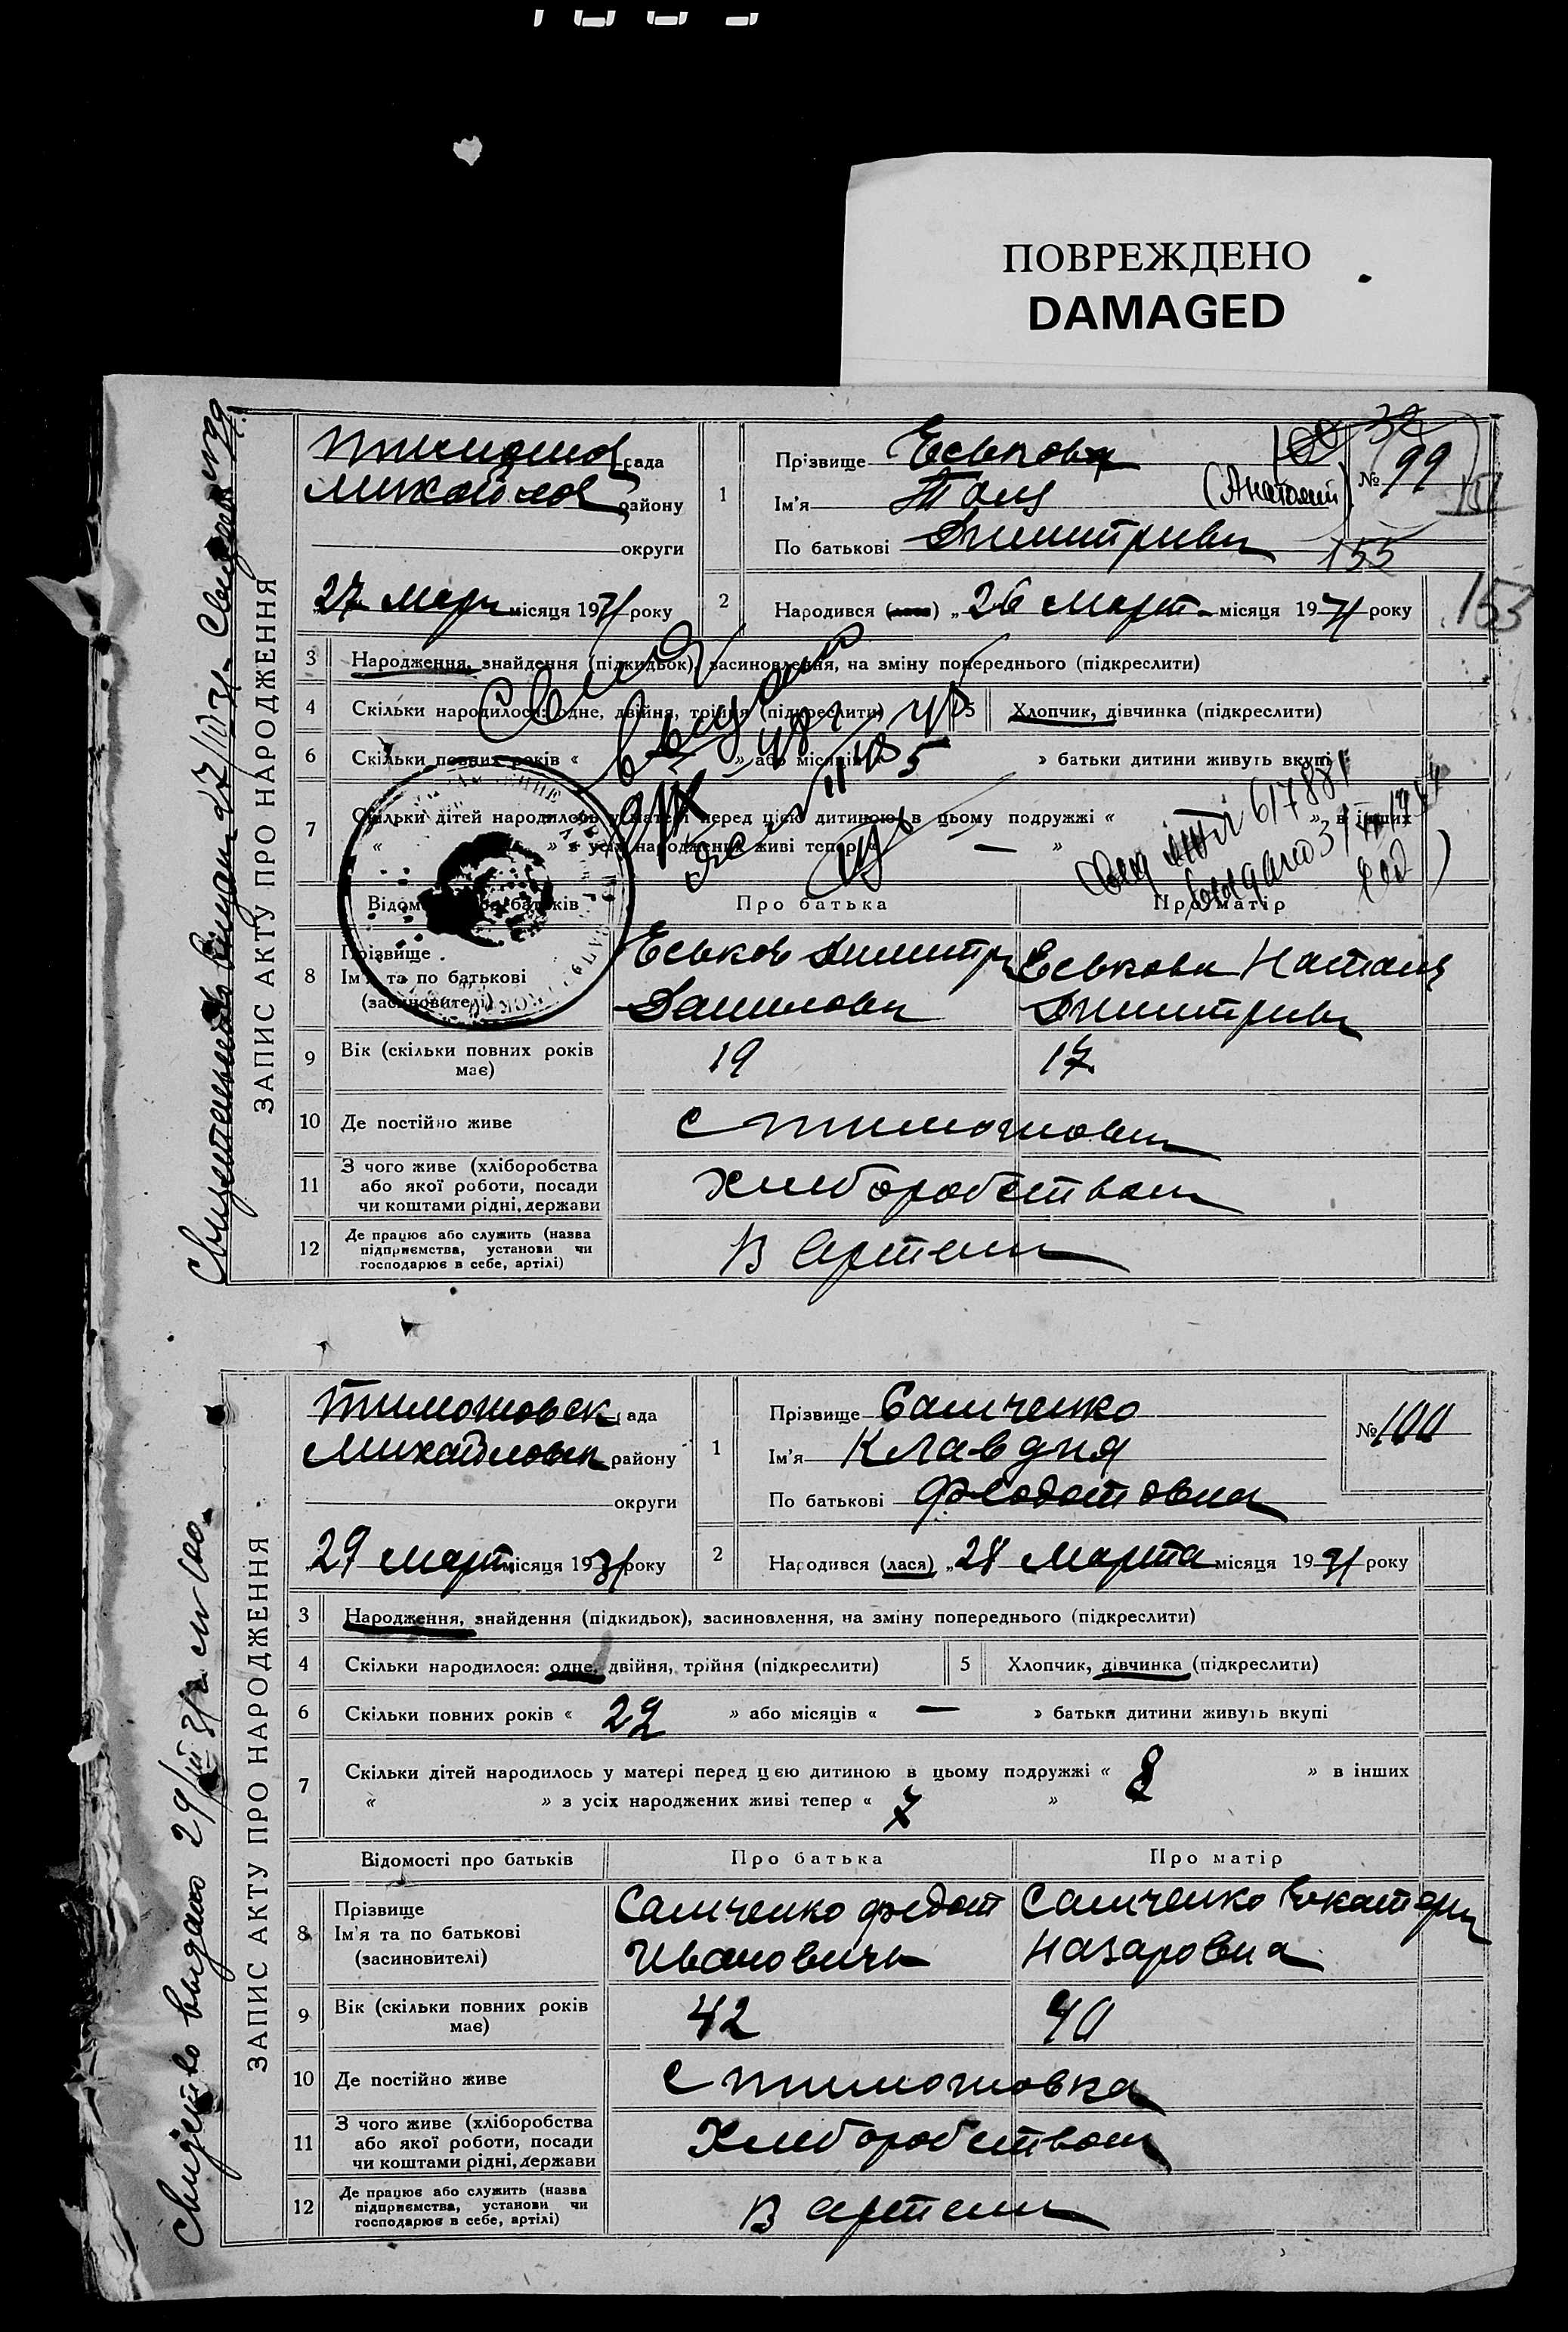 ПОВРЕЖДЕНО
DAMAGED
ЗАПИС АКТУ ПРО НАРОДЖЕННЯ
рада
району
округи
27 март місяця 1931 року
1
Прізвище Еськова
Ім'я Толя (Анатолий)
По батькові Дмитриевич
№ 99
155
153
2
Народився (лася) „26 март місяця 1931 року
3 Народження, знайдення (підкидьок), засиновлення, на зміну попереднього (підкреслити)
4 Скільки народилося: одне, двійня, трійня (підкреслити)
5 Хлопчик, дівчинка (підкреслити)
6 Скільки повних років « » або місяців « » батьки дитини живуть вкупі
7 Скільки дітей народилось у матері перед цією дитиною в цьому подружжі « » в інших
« » з усіх народжених живі тепер « — »
617881
Відомості про батьків Про батька Про матір
8 Прізвище
Ім'я та по батькові
(засиновителі)
Еськов Дмитр
Данилович
Еськова Наталя
Дмитриевн
9 Вік (скільки повних років має) 19 17
10 Де постійно живе с Тимошовка
11 З чого живе (хліборобства або якої роботи, посади чи коштами рідні, держави Хлеборобством
12 Де працює або служить (назва підприємства, установи чи господарює в себе, артілі) В артели
Свидетельство выдано 29/III 31 г. за № 100.
ЗАПИС АКТУ ПРО НАРОДЖЕННЯ
Тимошовск рада
Михайловск району
округи
„29 март місяця 1931 року
1
Прізвище Самченко
Ім'я Клавдия
По батькові Федотовна
№ 100
2
Народився (лася) „28 марта місяця 1931 року
3 Народження, знайдення (підкидьок), засиновлення, на зміну попереднього (підкреслити)
4 Скільки народилося: одне, двійня, трійня (підкреслити)
5 Хлопчик, дівчинка (підкреслити)
6 Скільки повних років « 22 » або місяців « — » батьки дитини живуть вкупі
7 Скільки дітей народилось у матері перед цією дитиною в цьому подружжі « 8 » в інших
« » з усіх народжених живі тепер « 7 »
Відомості про батьків Про батька Про матір
8 Прізвище
Ім'я та по батькові
(засиновителі)
Самченко Федот
Иванович
Самченко Екатери
Назаровна
9 Вік (скільки повних років має) 42 40
10 Де постійно живе с Тимошовка
11 З чого живе (хліборобства або якої роботи, посади чи коштами рідні, держави Хлеборобством
12 Де працює або служить (назва підприємства, установи чи господарює в себе, артілі) В артели